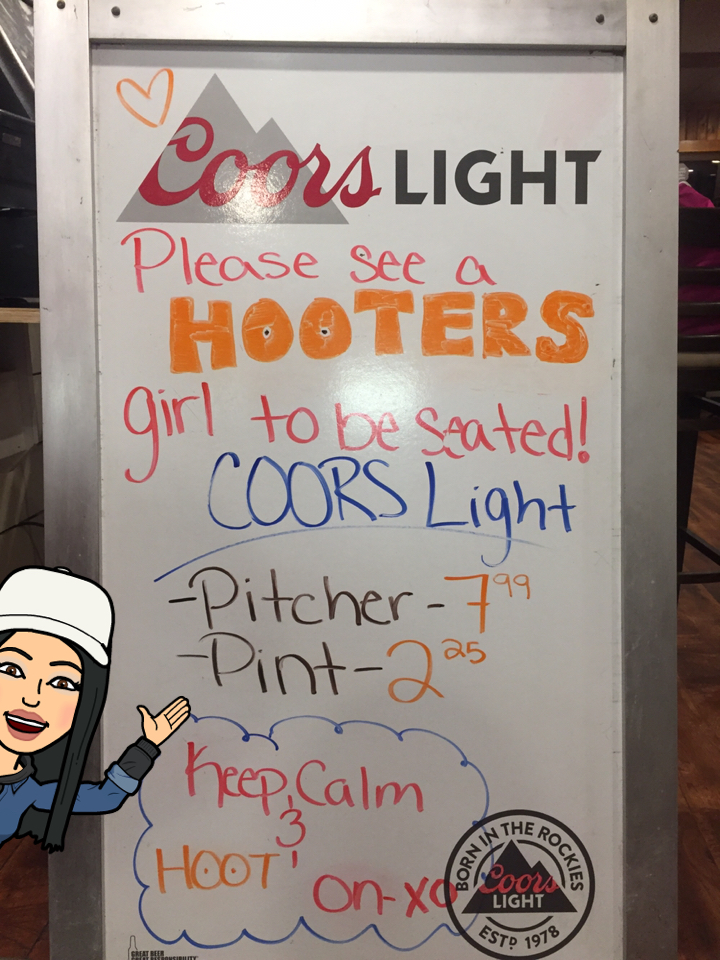 Coors LIGHT
Please see a
HOOTERS
girl to be seated!
COORS Light
-Pitcher-7⁹⁹
-Pint-2²⁵
Keep Calm
&
HOOT
on-xo
BORN IN THE ROCKIES
Coors
LIGHT
ESTD 1978
GREAT BEER
GREAT RESPONSIBILITY